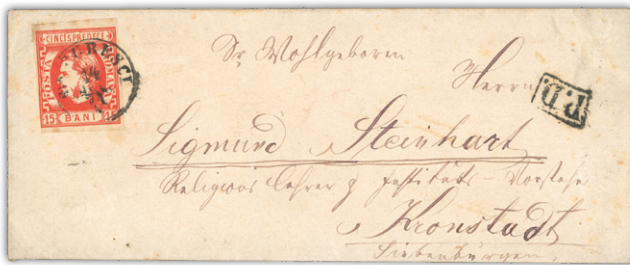 CINCISPREDECE
POSTA
ROMANA
15 BANI 15
BUCURESCI
14
P.D.
Sr Wohlgeboren
Herrn
Sigmund Steinhart
Religions Lehrer & Instituts-Vorsteher
Kronstadt
Siebenbürgen.